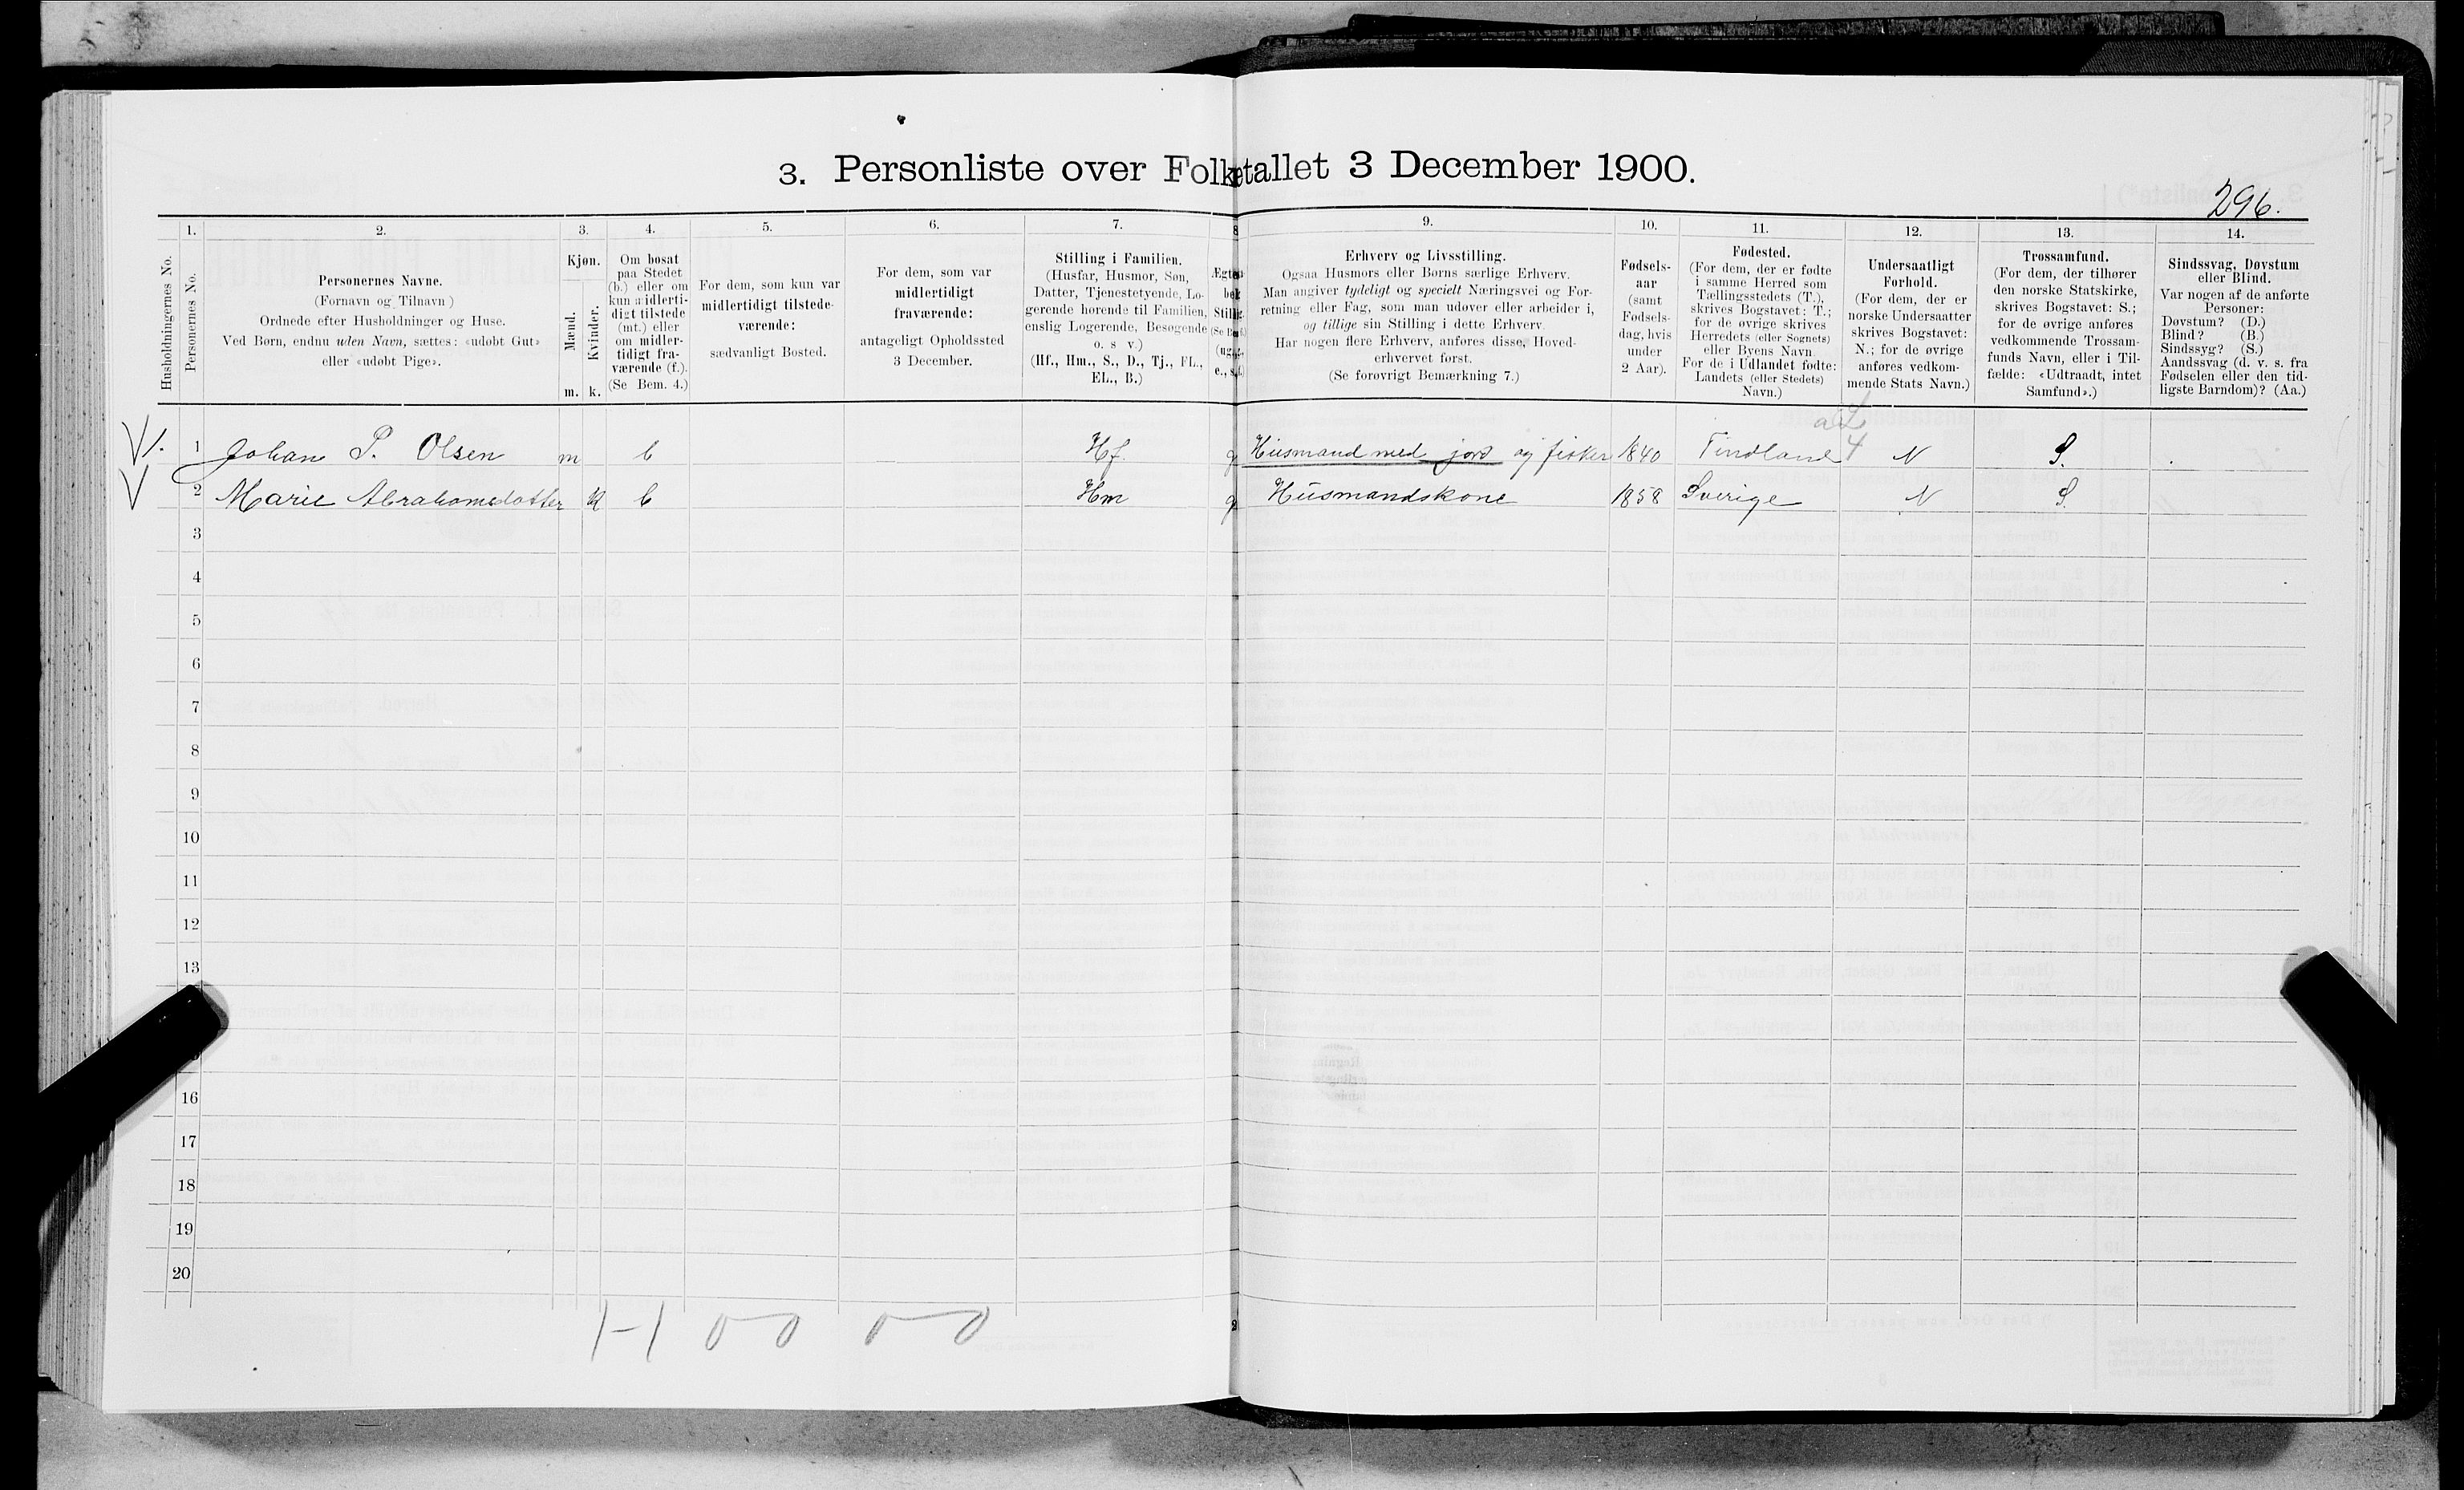 3. Personliste over Folketallet 3 December 1900.
296.
1. 2. 3. 4. 5. 6. 7. 8 9. 10. 11. 12. 13. 14.
Husholdningernes No.
Personernes No.
Personernes Navne.
(Fornavn og Tilnavn)
Ordnede efter Husholdninger og Huse.
Ved Børn, endnu uden Navn, sættes: «udøbt Gut»
eller «udøbt Pige».
Kjøn.
Mænd.
Kvinder.
m. k.
Om bosat
paa Stedet
(b.) eller om
kun midlerti-
digt tilstede
(mt.) eller
om midler-
tidigt fra-
værende (f.).
(Se Bem. 4.)
For dem, som kun var
midlertidigt tilstede-
værende:
sædvanligt Bosted.
For dem, som var
midlertidigt
fraværende:
antageligt Opholdssted
3 December.
Stilling i Familien.
(Husfar, Husmor, Søn,
Datter, Tjenestetyende, Lo-
gerende hørende til Familien,
enslig Logerende, Besøgende
o. s v.)
(Hf., Hm., S., D., Tj., FL.,
EL., B.)
Erhverv og Livsstilling.
Ogsaa Husmors eller Børns særlige Erhverv.
Man angiver tydeligt og specielt Næringsvei og For-
retning eller Fag, som man udøver eller arbeider i,
og tillige sin Stilling i dette Erhverv.
Har nogen flere Erhverv, anføres disse, Hoved-
erhvervet først.
(Se forøvrigt Bemærkning 7.)
Fødsels-
aar
(samt
Fødsels-
dag, hvis
under
2 Aar).
Fødested.
(For dem, der er fødte
i samme Herred som
Tællingsstedets (T.),
skrives Bogstavet: T.;
for de øvrige skrives
Herredets (eller Sognets)
eller Byens Navn.
For de i Udlandet fødte:
Landets (eller Stedets)
Navn.)
Undersaatligt
Forhold.
(For dem, der er
norske Undersaatter
skrives Bogstavet:
N.; for de øvrige
anføres vedkom-
mende Stats Navn.)
Trossamfund.
(For dem, der tilhører
den norske Statskirke,
skrives Bogstavet: S.;
for de øvrige anføres
vedkommende Trossam-
funds Navn, eller i Til-
fælde: «Udtraadt, intet
Samfund».)
Sindssvag, Døvstum
eller Blind.
Var nogen af de anførte
Personer:
Døvstum? (D.)
Blind? (B.)
Sindssyg? (S.)
Aandssvag (d. v. s. fra
Fødselen eller den tid-
ligste Barndom)? (Aa.)
1. 1 Johan P. Olsen m b Hf. g Husmand med jord og fisker 1840 Findland N S.
2 Marie Abrahamsdatter k b Hm g Husmandskone 1858 Sverige N S.
3
4
5
6
7
8
9
10
11
12
13
16
17
18
19
20
1-1 0-0 0-0